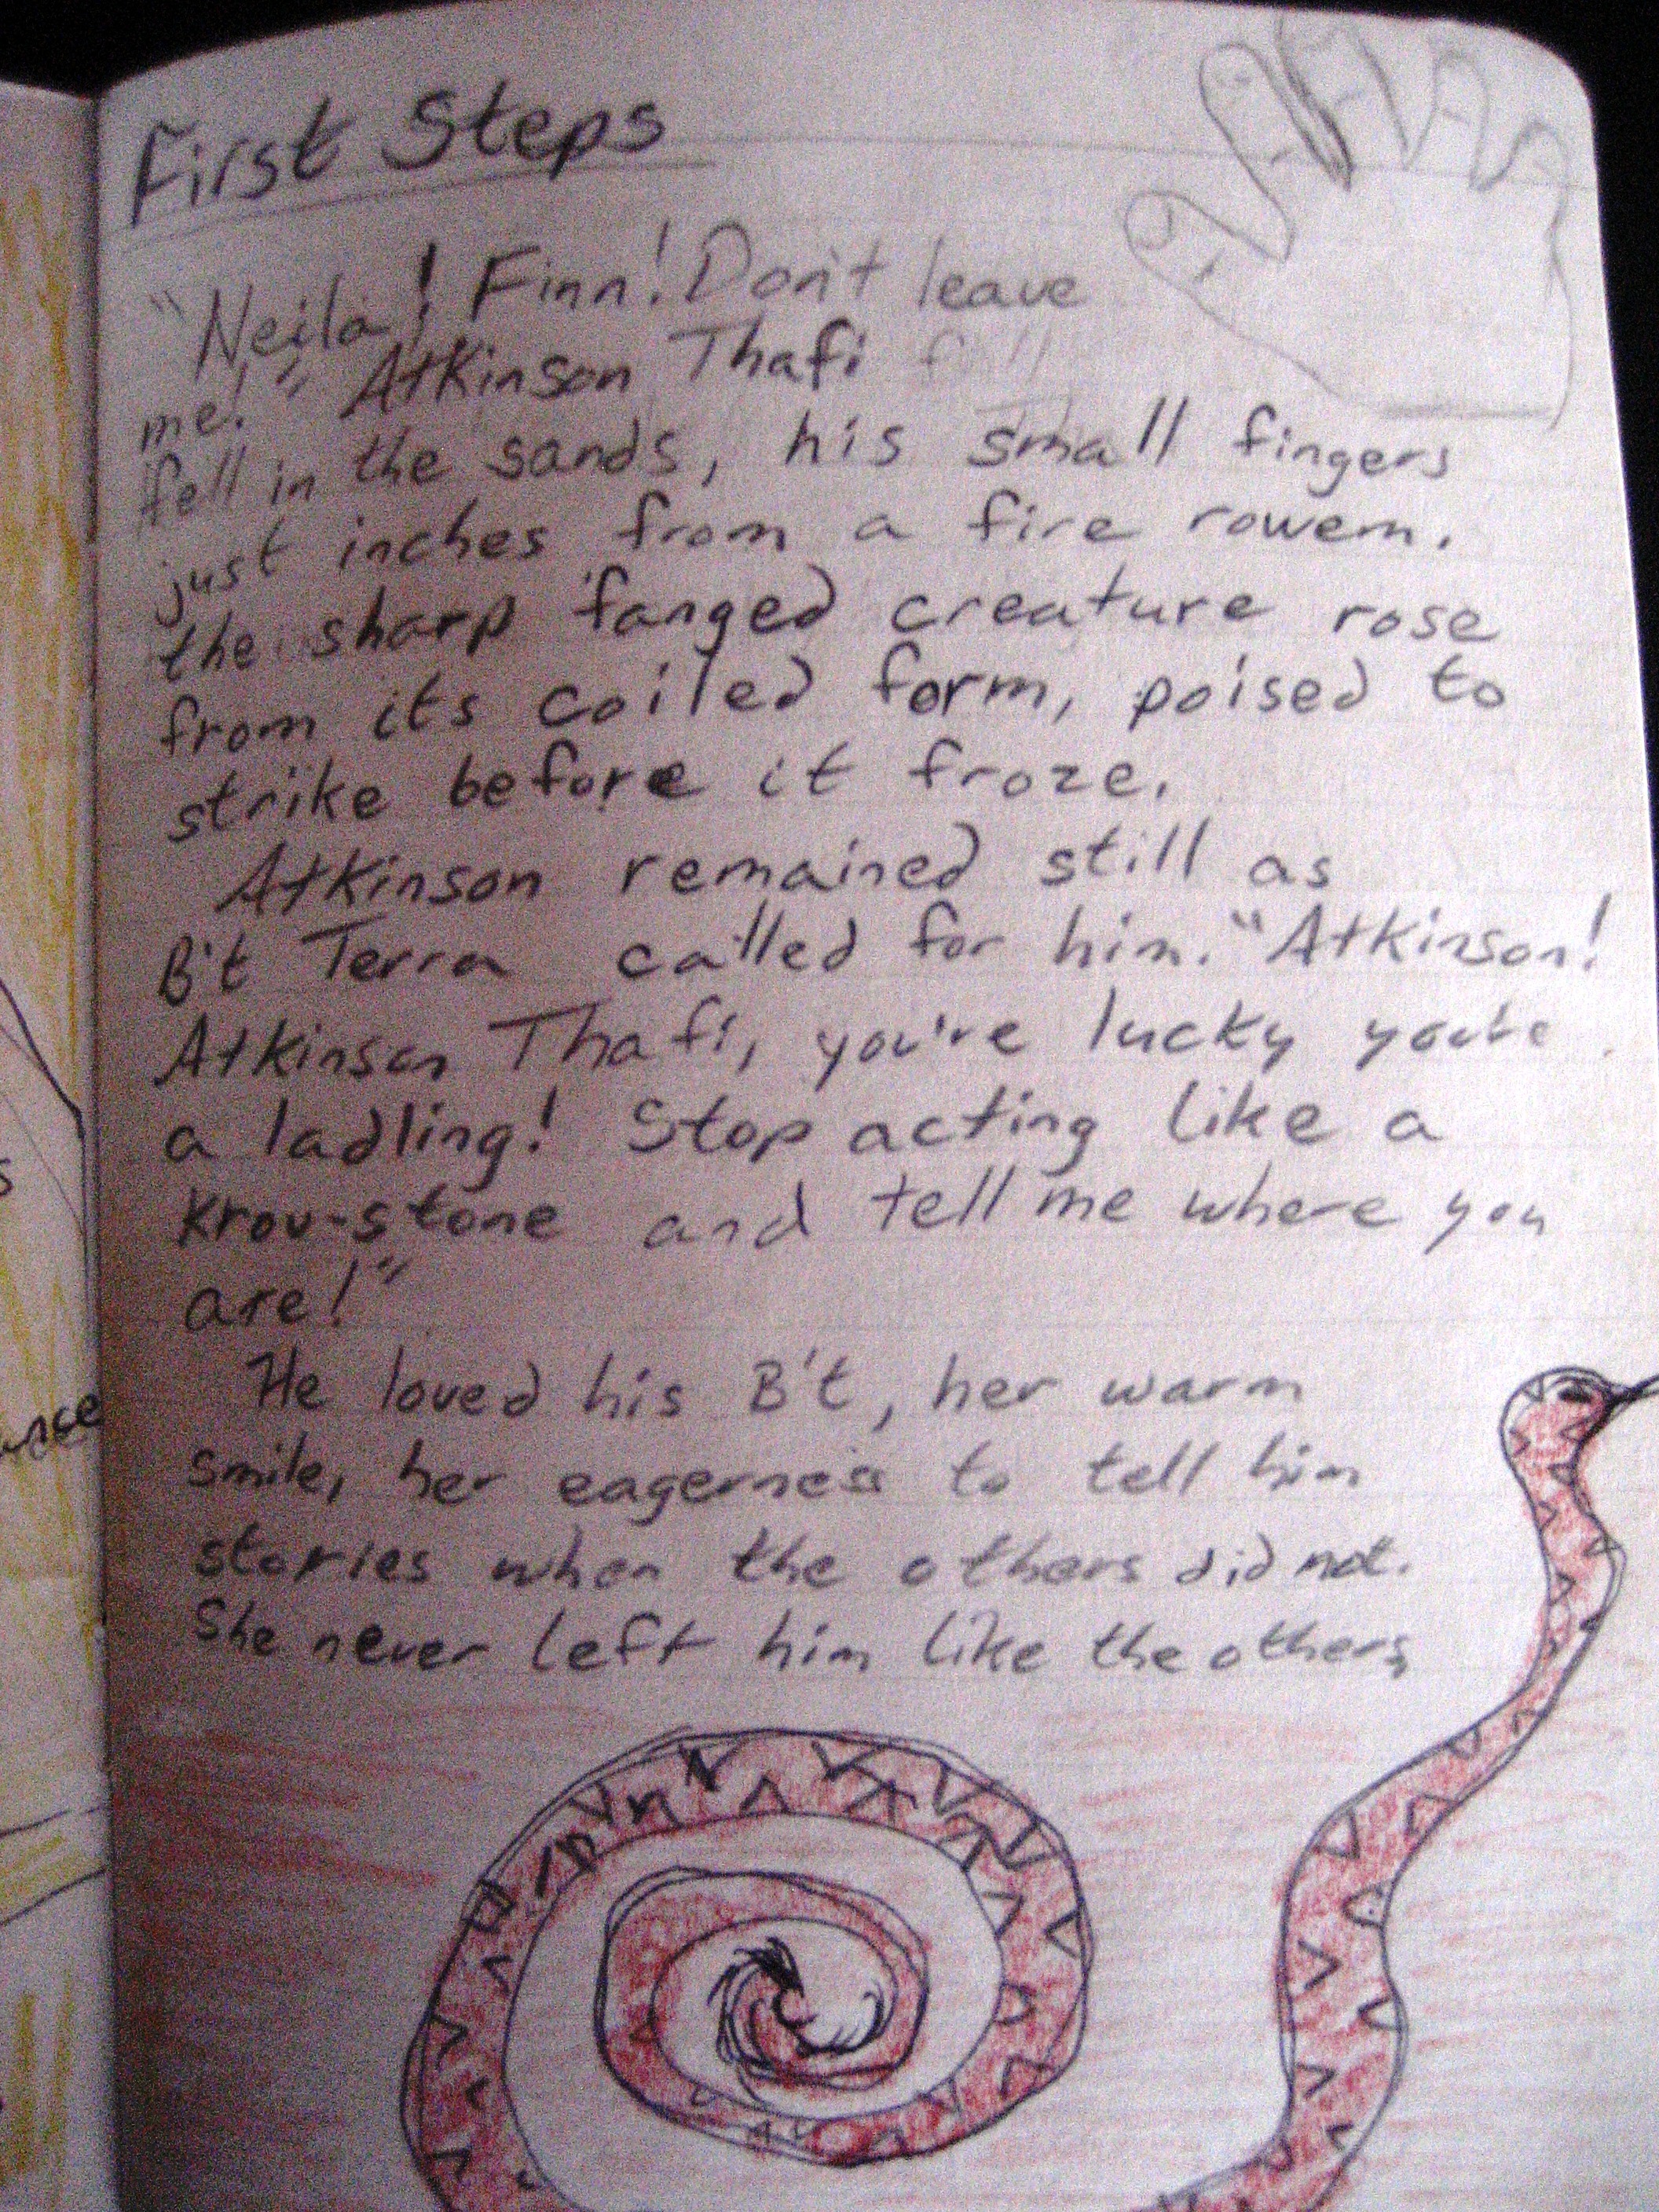 First Steps
"Neila! Finn! Don't leave
me!" Atkinson Thafi
fell in the sands, his small fingers
just inches from a fire rowem.
the sharp fanged creature rose
from its coiled form, poised to
strike before it froze.
Atkinson remained still as
B't Terra called for him. "Atkinson!
Atkinson Thafi, you're lucky you're
a ladling! Stop acting like a
Krov-stone and tell me where you
are!"
He loved his B't, her warm
smile, her eagerness to tell him
stories when the others did not.
She never left him like the others